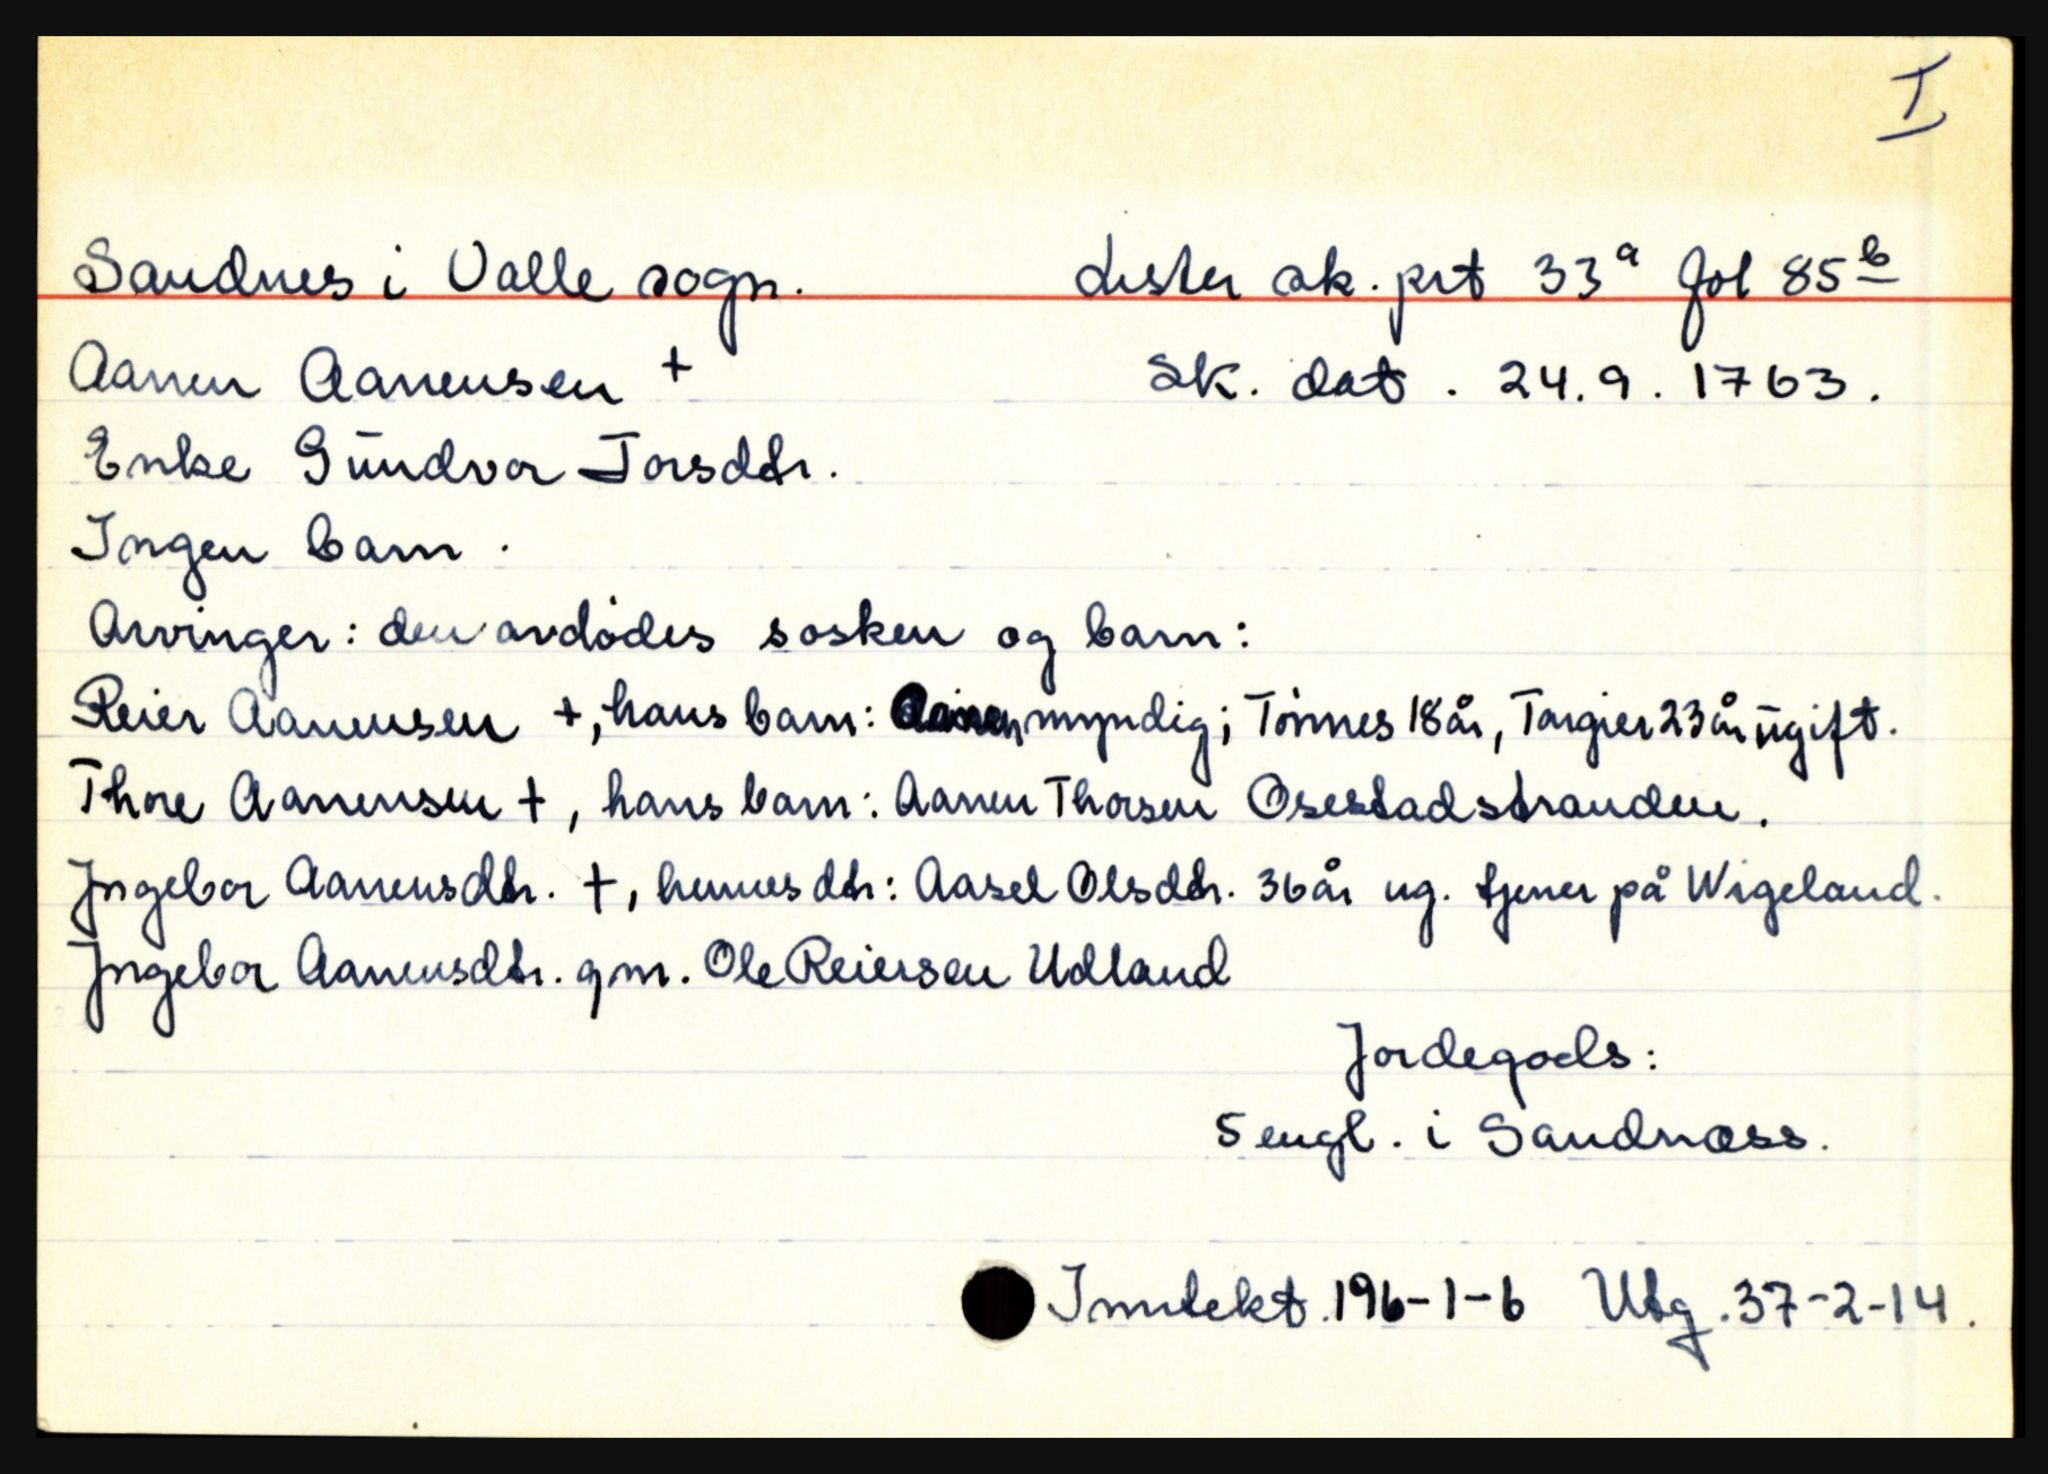 I
Sandnes i Valle sogn. Lister sk. prt 33ª fol 85b
Aanen Aanensen + Sk. dat. 24.9.1763.
Enke Gūndvor Torsdtr.
Ingen barn.
Arvinger: den avdødes sosken og barn:
Reier Aanensen +, hans barn: Aanen myndig; Tønnes 18 år, Targier 23 år ūgift.
Thore Aanensen +, hans barn: Aanen Thorsen Osestadstranden.
Ingebor Aanensdtr. +, hennes dtr: Aasel Olsdtr. 36 år ug. tjener på Wigeland.
Ingebor Aanensdtr. gm. Ole Reiersen Udland
Jordegods:
5 engl. i Sandnæss.
Inntekt. 196-1-6 Utg. 37-2-14.